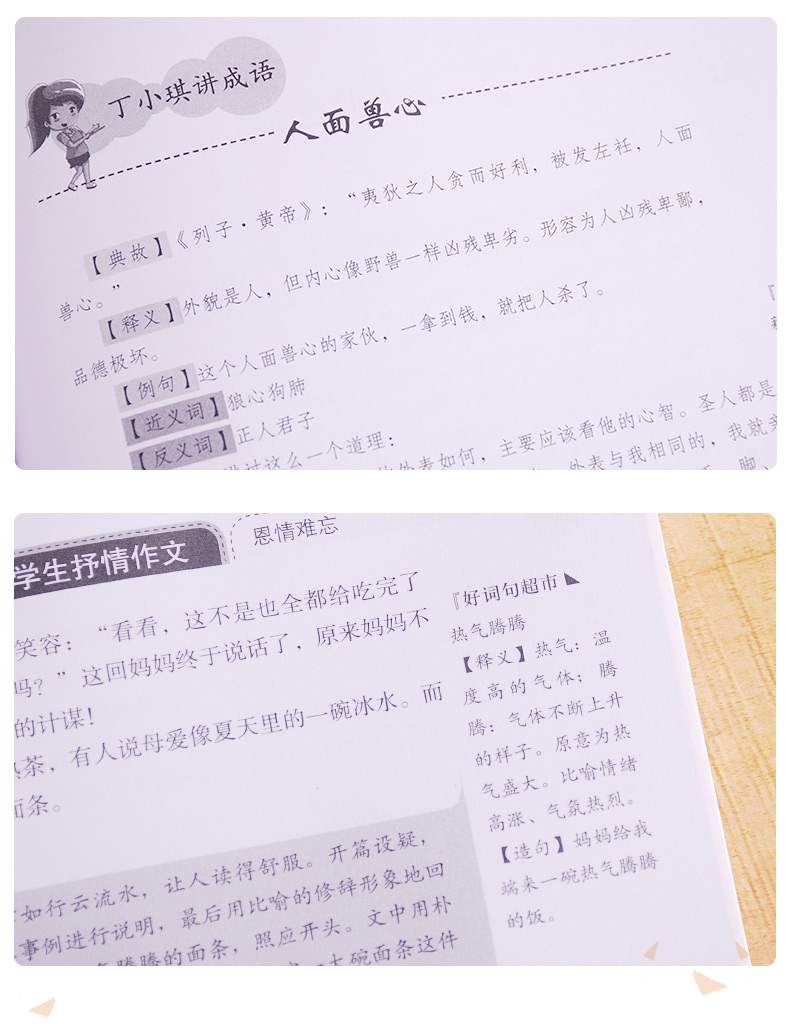 丁小琪讲成语
人面兽心
【典故】《列子·黄帝》：“夷狄之人贪而好利，被发左衽，人面
兽心。”
【释义】外貌是人，但内心像野兽一样凶残卑劣。形容为人凶残卑鄙，
品德极坏。
【例句】这个人面兽心的家伙，一拿到钱，就把人杀了。
【近义词】狼心狗肺
【反义词】正人君子
说过这么一个道理：
的外表如何，主要应该看他的心智。圣人都是
外表与我相同的，我就亲
脚、
学生抒情作文
恩情难忘
笑容：“看看，这不是也全都给吃完了
吗？”这回妈妈终于说话了，原来妈妈不
的计谋！
热茶，有人说母爱像夏天里的一碗冰水。而
面条。
如行云流水，让人读得舒服。开篇设疑，
事例进行说明，最后用比喻的修辞形象地回
腾腾的面条，照应开头。文中用朴
大碗面条这件
『好词句超市
热气腾腾
【释义】热气：温
度高的气体；腾
腾：气体不断上升
的样子。原意为热
气盛大。比喻情绪
高涨、气氛热烈。
【造句】妈妈给我
端来一碗热气腾腾
的饭。